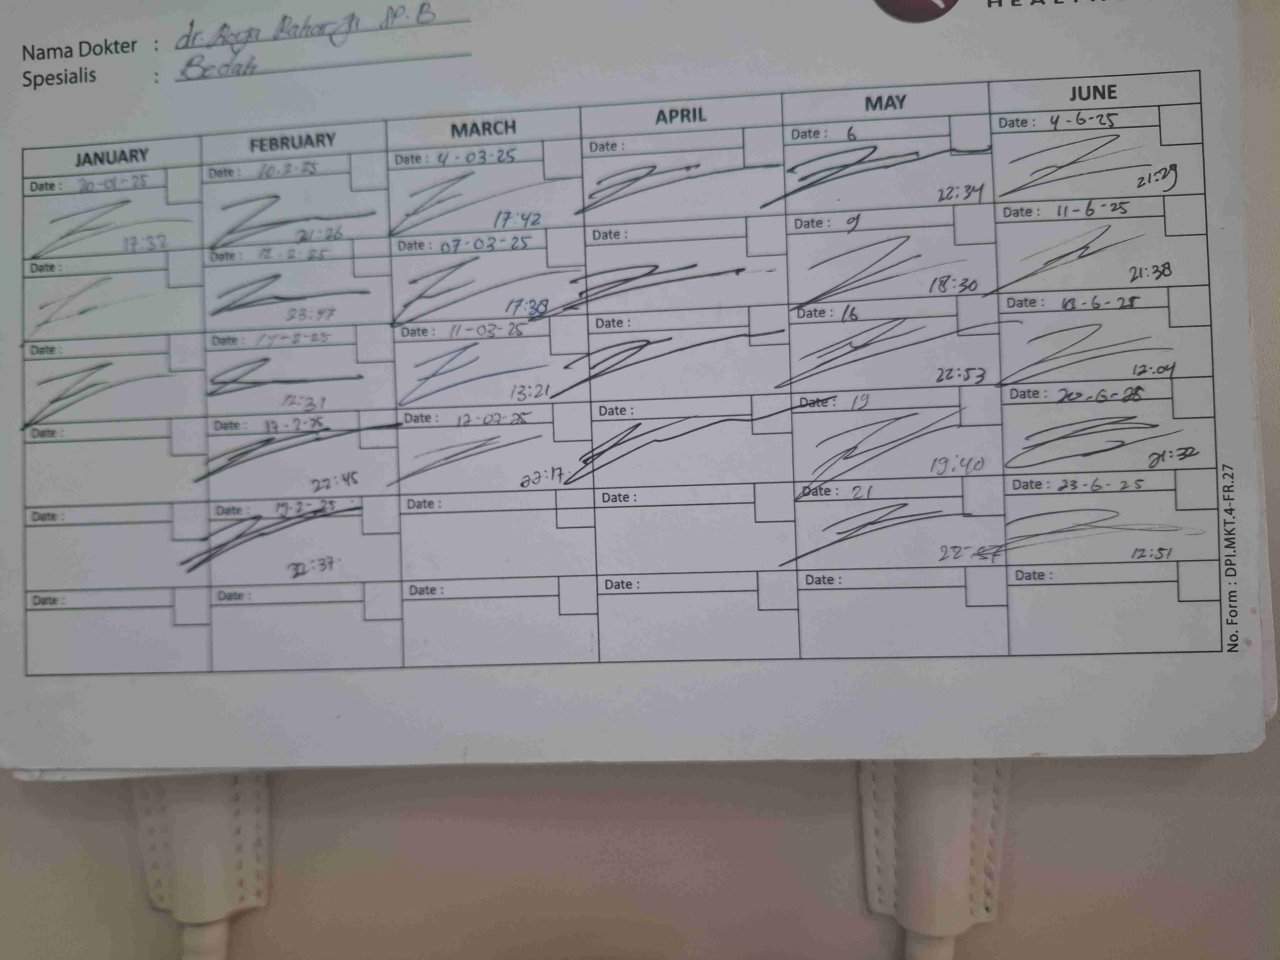 HEALTH
Nama Dokter : dr. Raharji SP.B
Spesialis : Bedah
JANUARY FEBRUARY MARCH APRIL MAY JUNE
Date : 20-01-25 Date : 10-2-25 Date : 4-03-25 Date : Date : 6 Date : 4-6-25
17:32 21:26 17:42 22:34 21:29
Date : Date : 12-2-25 Date : 07-03-25 Date : Date : 9 Date : 11-6-25
23:47 17:38 18:30 21:38
Date : Date : 14-2-25 Date : 11-03-25 Date : Date : 16 Date : -6-25
12:31 13:21 22:53 12:04
Date : Date : 17-2-25 Date : 12-03-25 Date : Date : 19 Date : 20-6-25
22:45 22:17 19:40 21:32
Date : Date : 19-2-25 Date : Date : Date : 21 Date : 23-6-25
22:37 22:57 12:51
Date : Date : Date : Date : Date : Date :
No. Form : DPI.MKT.4-FR.27